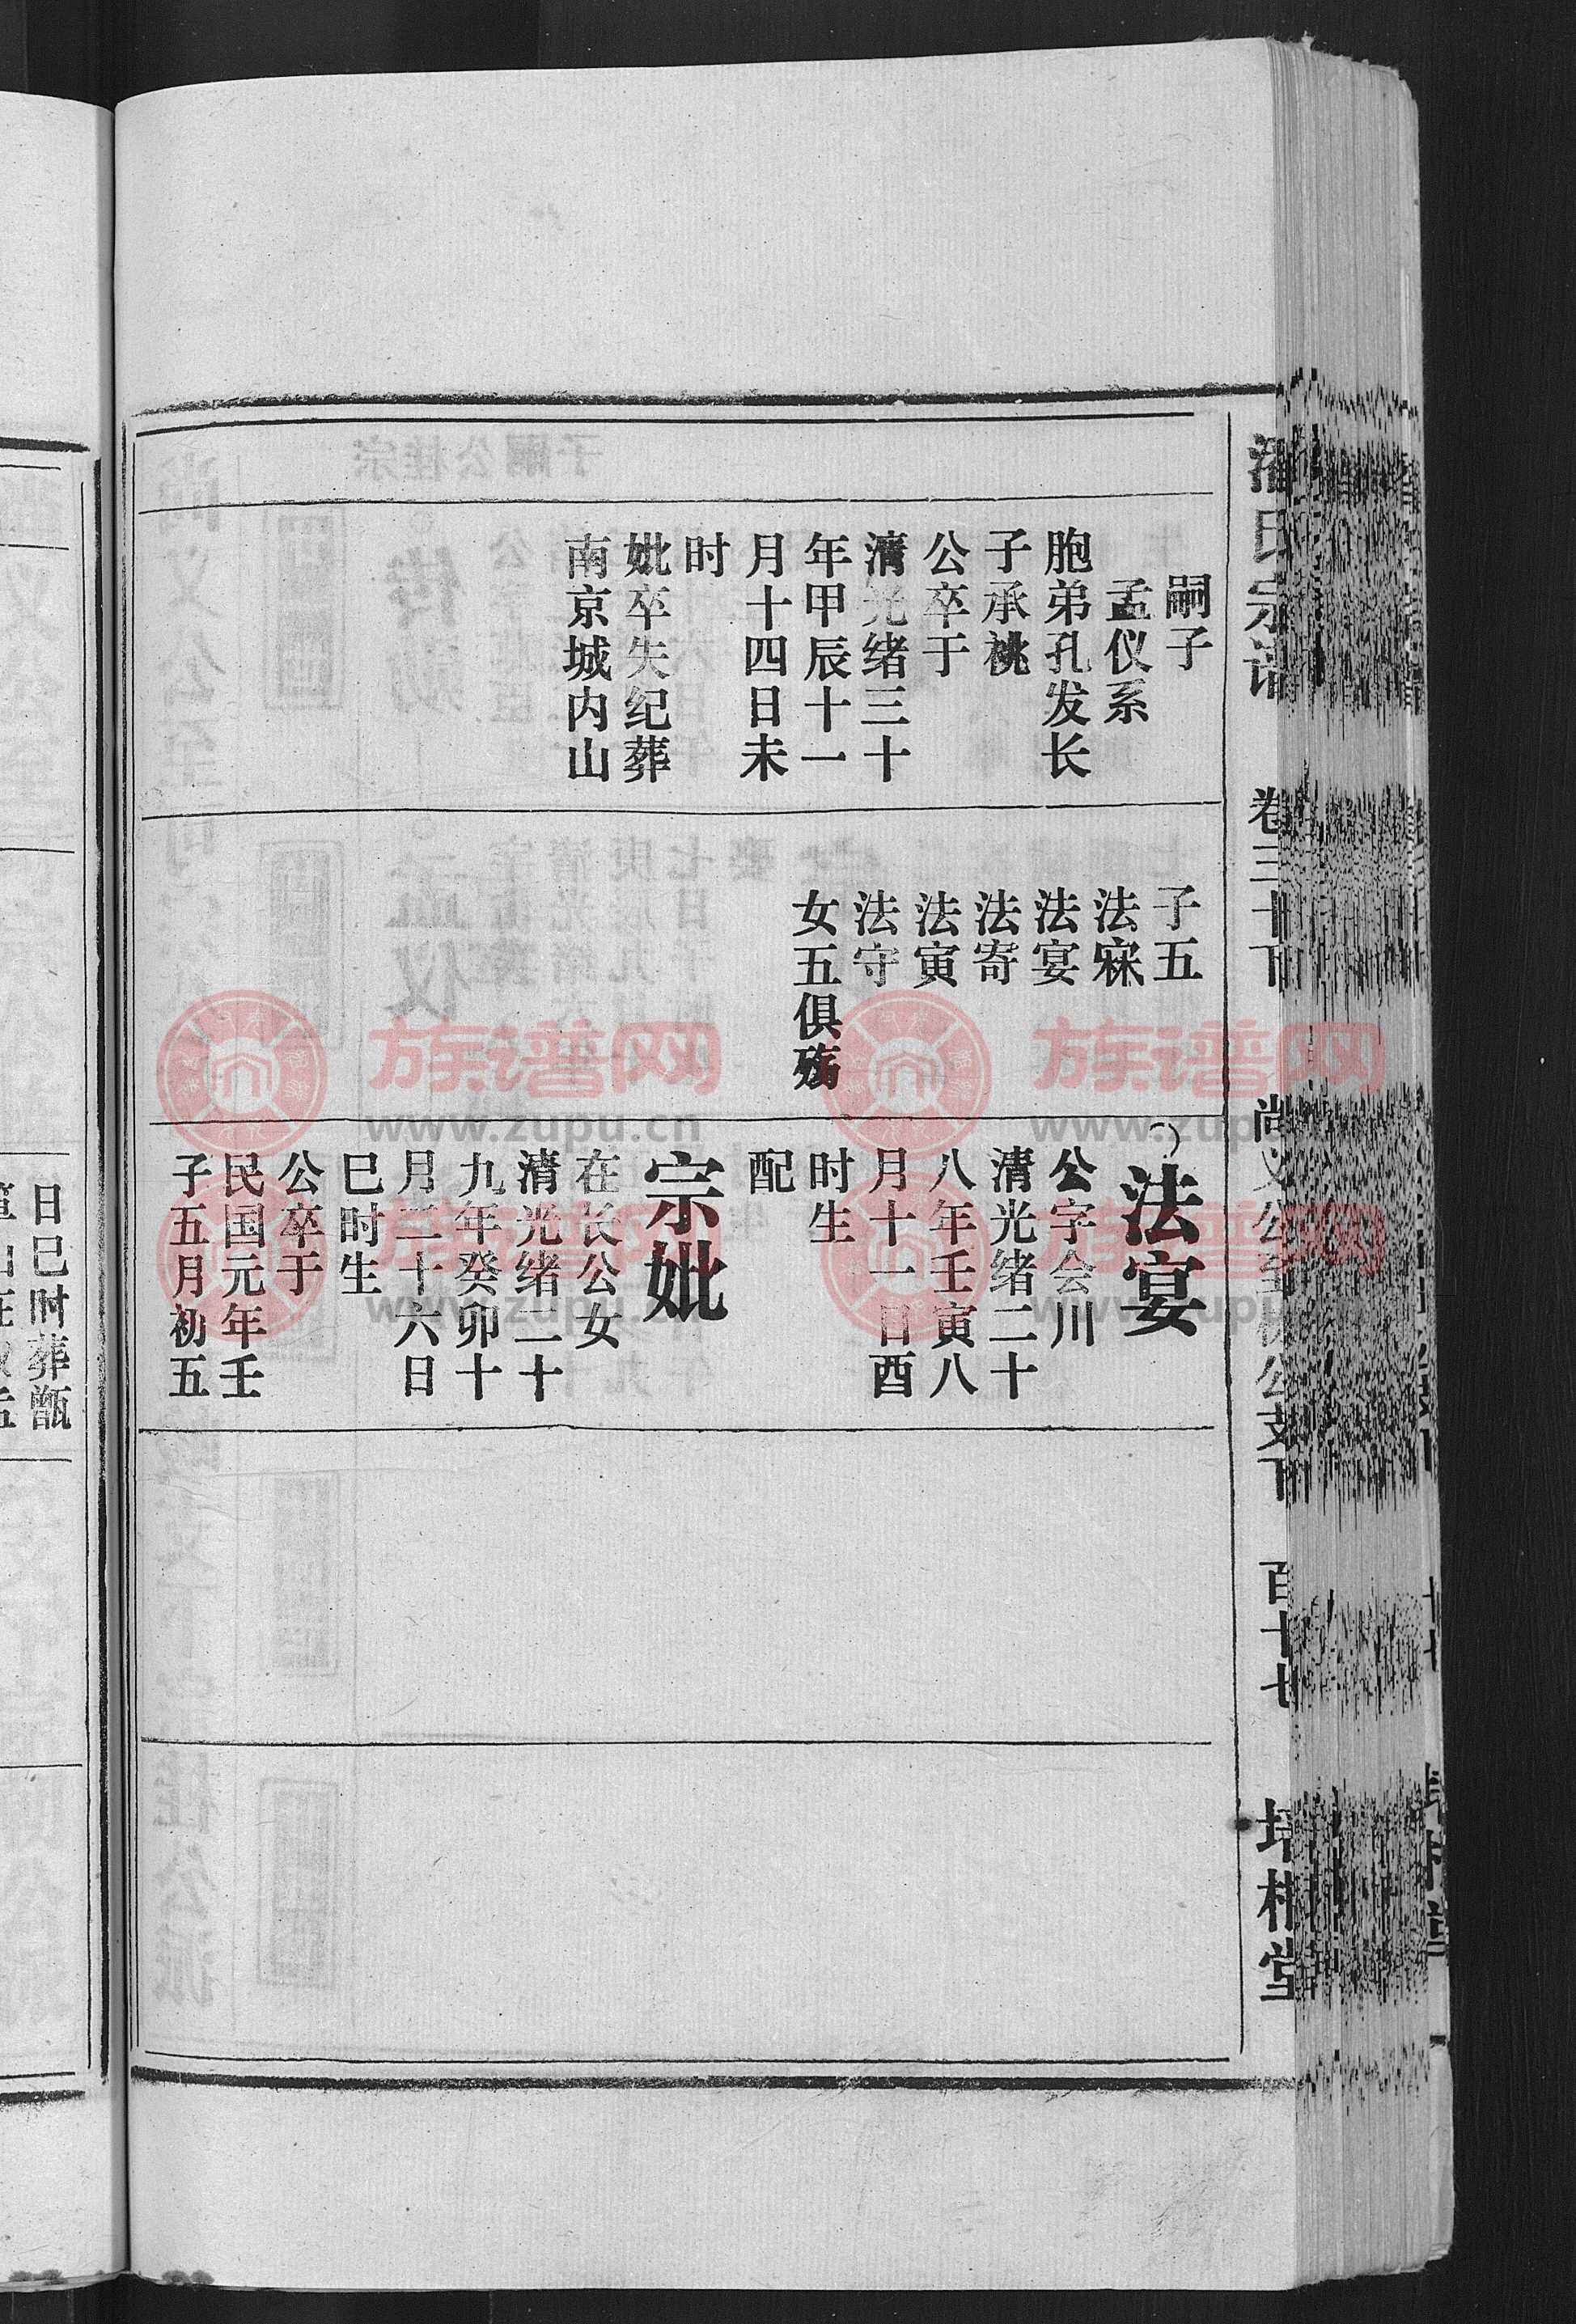 潘氏宗谱
卷三十下
百十七
培根堂
嗣子
孟仪系
胞弟孔发长
子承桃
公卒于
清光绪三十
年甲辰十一
月十四日未
时
妣卒失纪葬
南京城内山
子五
法寐
法宴
法寄
法寅
法守
女五俱殇
法宴
公字会川
清光绪二十
八年壬寅八
月十一日酉
时生
配
宗妣
在长公女
清光绪二十
九年癸卯十
月二十六日
巳时生
公卒于
民国元年壬
子五月初五
日巳时葬甑
族谱网
www.zupu.cn
族谱网
www.zupu.cn
族谱网
www.zupu.cn
族谱网
www.zupu.cn